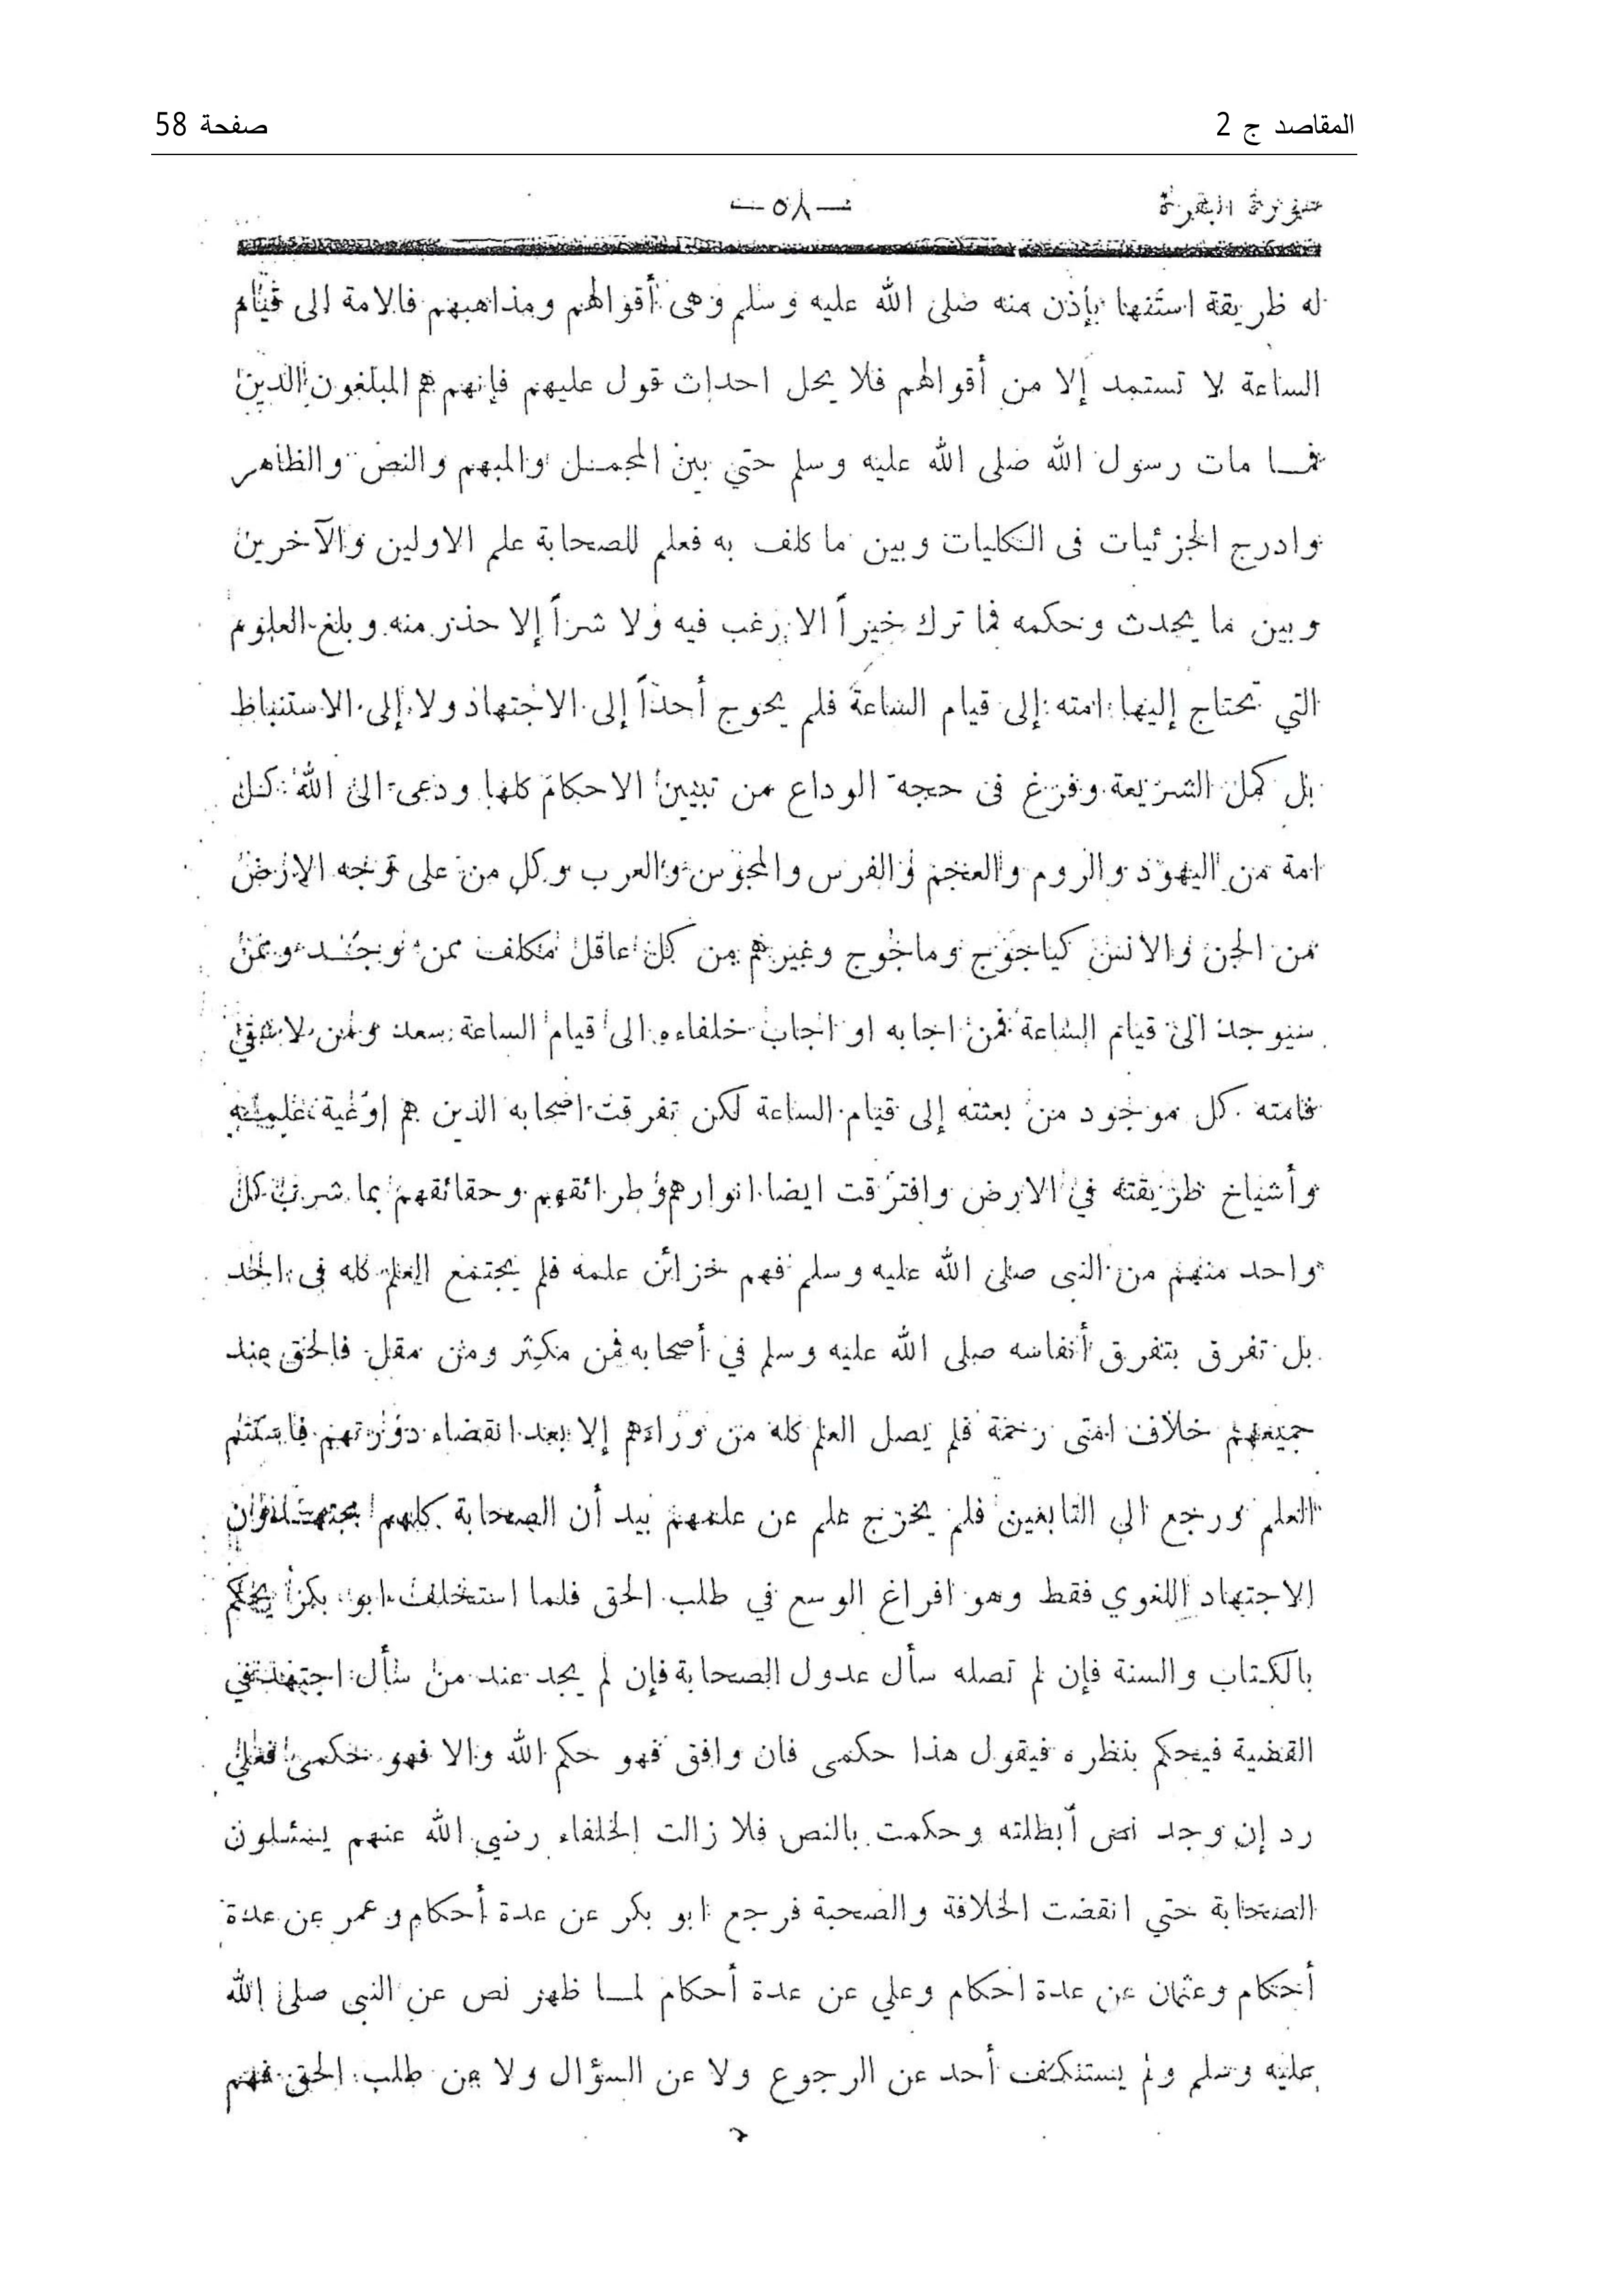 المقاصد ج 2
صفحة 58
سورة البقرة
— ٥٨ —
له طريقة استنها بإذن منه صلى الله عليه وسلم وهى أقوالهم ومذاهبهم فالامة الى قيام
الساعة لا تستمد إلا من أقوالهم فلا يحل احداث قول عليهم فإنهم هم المبلغون الدين
فما مات رسول الله صلى الله عليه وسلم حتي بين المجمل والمبهم والنص والظاهر
وادرج الجزئيات فى الكليات وبين ما كلف به فعلم للصحابة علم الاولين والآخرين
وبين ما يحدث وحكمه فما ترك خيراً الا رغب فيه ولا شراً إلا حذر منه وبلغ العلوم
التي تحتاج إليها امته إلى قيام الساعة فلم يحوج أحداً إلى الاجتهاد ولا إلى الاستنباط
بل كمل الشريعة وفرغ فى حجة الوداع من تبيين الاحكام كلها ودعى الى الله كل
امة من اليهود والروم والعجم والفرس والمجوس والعرب وكل من على وجه الارض
من الجن والانس كياجوج وماجوج وغيرهم من كل عاقل مكلف ممن وجد وممن
سيوجد الى قيام الساعة فمن اجابه او اجاب خلفاءه الى قيام الساعة سعد ومن لا شقي
فامته كل موجود من بعثته إلى قيام الساعة لكن تفرقت اصحابه الذين هم اوعية علمه
وأشياخ طريقته في الارض وافترقت ايضا انوارهم وطرائقهم وحقائقهم بما شرب كل
واحد منهم من النبى صلى الله عليه وسلم فهم خزائن علمه فلم يجتمع العلم كله فى احد
بل تفرق بتفرق أنفاسه صلى الله عليه وسلم في أصحابه فمن مكثر ومن مقل فالحق عند
جميعهم خلاف امتى رحمة فلم يصل العلم كله من وراءهم إلا بعد انقضاء دورتهم فاستتم
العلم ورجع الي التابعين فلم يخرج علم عن علمهم بيد أن الصحابة كلهم مجتهدون
الاجتهاد اللغوي فقط وهو افراغ الوسع في طلب الحق فلما استخلف ابو بكر يحكم
بالكتاب والسنة فإن لم تصله سأل عدول الصحابة فإن لم يجد عند من سأل اجتهد في
القضية فيحكم بنظره فيقول هذا حكمى فان وافق فهو حكم الله والا فهو حكمى فعلي
رد إن وجد نص أبطلته وحكمت بالنص فلا زالت الخلفاء رضي الله عنهم يسئلون
الصحابة حتي انقضت الخلافة والصحبة فرجع ابو بكر عن عدة أحكام وعمر عن عدة
أحكام وعثمان عن عدة احكام وعلي عن عدة أحكام لما ظهر نص عن النبى صلى الله
عليه وسلم ولم يستنكف أحد عن الرجوع ولا عن السؤال ولا عن طلب الحق فهم